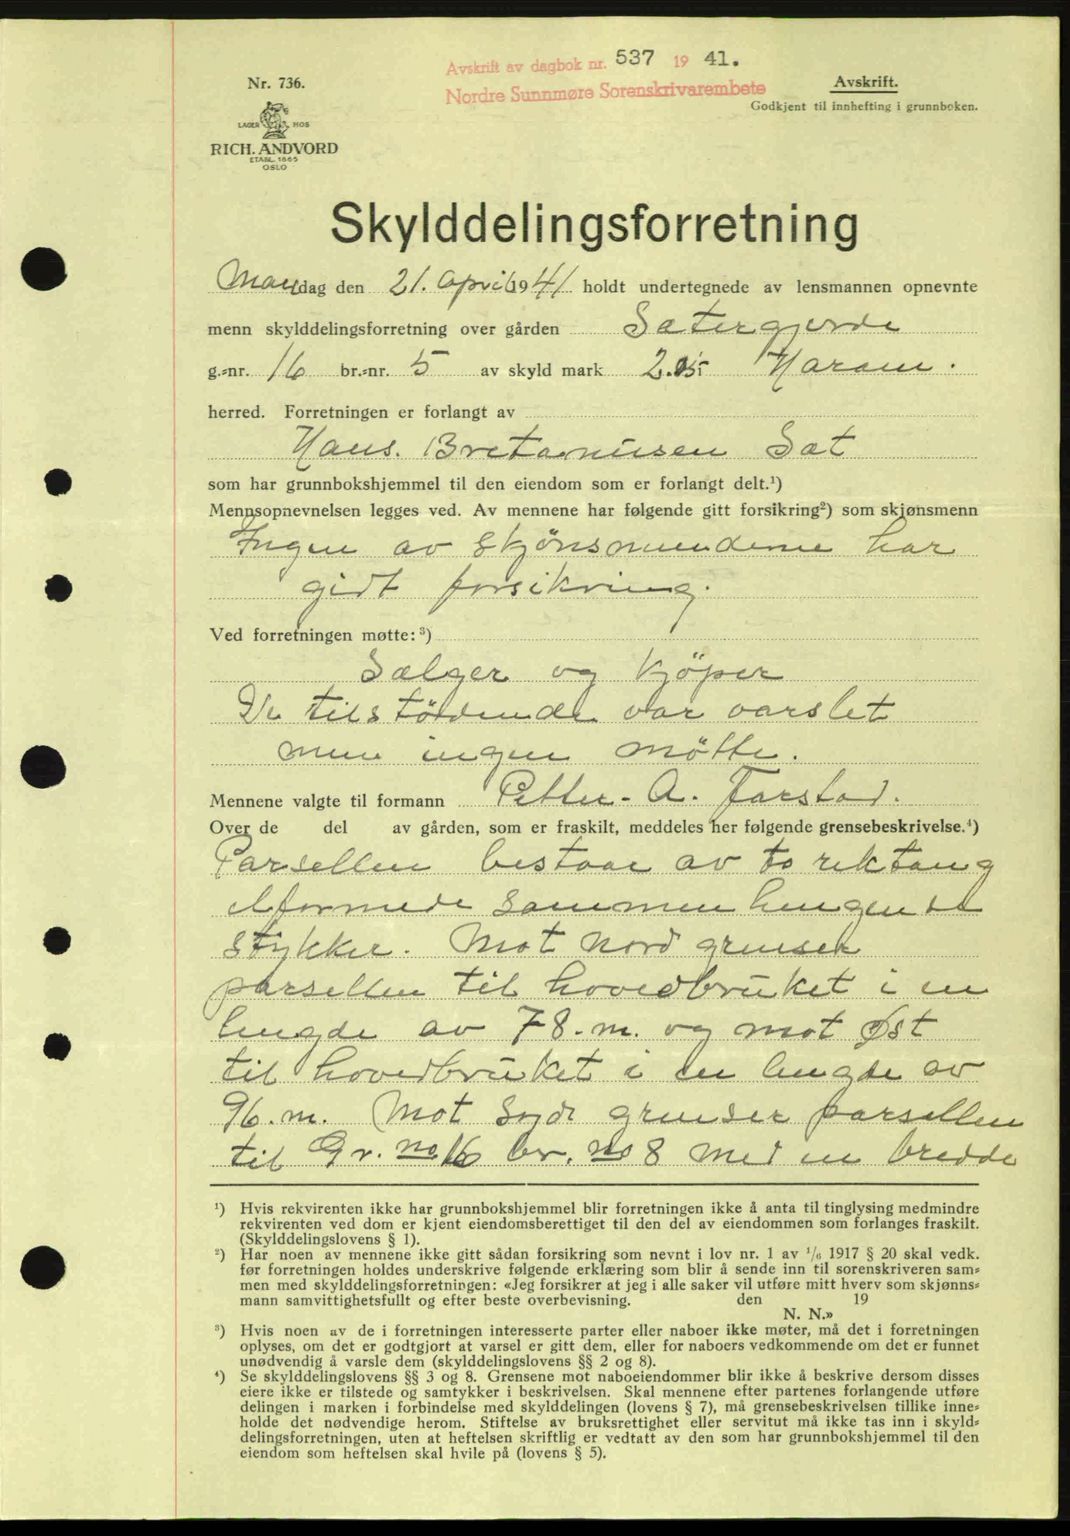 Avskrift av dagbok nr. 537 1941.
Nordre Sunnmøre Sorenskrivarembete
Nr. 736.
LAGER HOS
RICH. ANDVORD
ETABL. 1865
OSLO
Avskrift.
Godkjent til innhefting i grunnboken.
Skylddelingsforretning
Mandag den 21. april 1941 holdt undertegnede av lensmannen opnevnte
menn skylddelingsforretning over gården Sætergjerde
g.-nr. 16 br.-nr. 5 av skyld mark Haram.
herred. Forretningen er forlangt av
Hans. Bretanusen Sæt
som har grunnbokshjemmel til den eiendom som er forlangt delt.¹)
Mennsopnevnelsen legges ved. Av mennene har følgende gitt forsikring²) som skjønsmenn
Ingen av skjönsmendene har
gidt forsikring.
Ved forretningen møtte:³)
Sælger og kjöper
De tilstödende var varslet
men ingen mötte.
Mennene valgte til formann Petter A. Farstad.
Over de del av gården, som er fraskilt, meddeles her følgende grensebeskrivelse.⁴)
Parsellen bestaar av to rektang
elformede sammenhengende
stykker. Mot nord grenser
parsellen til hovedbruket i en
lengde av 78. m. og mot Øst
til hovedbruket i en lengde av
96. m. Mot syd grenser parsellen
til Gr. no 16 br. no 8 med en bredde
¹) Hvis rekvirenten ikke har grunnbokshjemmel blir forretningen ikke å anta til tinglysing medmindre
rekvirenten ved dom er kjent eiendomsberettiget til den del av eiendommen som forlanges fraskilt.
(Skylddelingslovens § 1).
²) Har noen av mennene ikke gitt sådan forsikring som nevnt i lov nr. 1 av ¹/₆ 1917 § 20 skal vedk.
før forretningen holdes underskrive følgende erklæring som blir å sende inn til sorenskriveren sam-
men med skylddelingsforretningen: «Jeg forsikrer at jeg i alle saker vil utføre mitt hverv som skjønns-
mann samvittighetsfullt og efter beste overbevisning. den 19
N. N.»
³) Hvis noen av de i forretningen interesserte parter eller naboer ikke møter, må det i forretningen
oplyses, om det er godtgjort at varsel er gitt dem, eller for naboers vedkommende om det er funnet
unødvendig å varsle dem (skylddelingslovens §§ 2 og 8).
⁴) Se skylddelingslovens §§ 3 og 8. Grensene mot naboeiendommer blir ikke å beskrive dersom disses
eiere ikke er tilstede og samtykker i beskrivelsen. Skal mennene efter partenes forlangende utføre
delingen i marken i forbindelse med skylddelingen (lovens § 7), må grensebeskrivelsen tillike inne-
holde det nødvendige herom. Stiftelse av bruksrettighet eller servitut må ikke tas inn i skyld-
delingsforretningen, uten at heftelsen skriftlig er vedtatt av den som har grunnbokshjemmel til den
eiendom som heftelsen skal hvile på (lovens § 5).